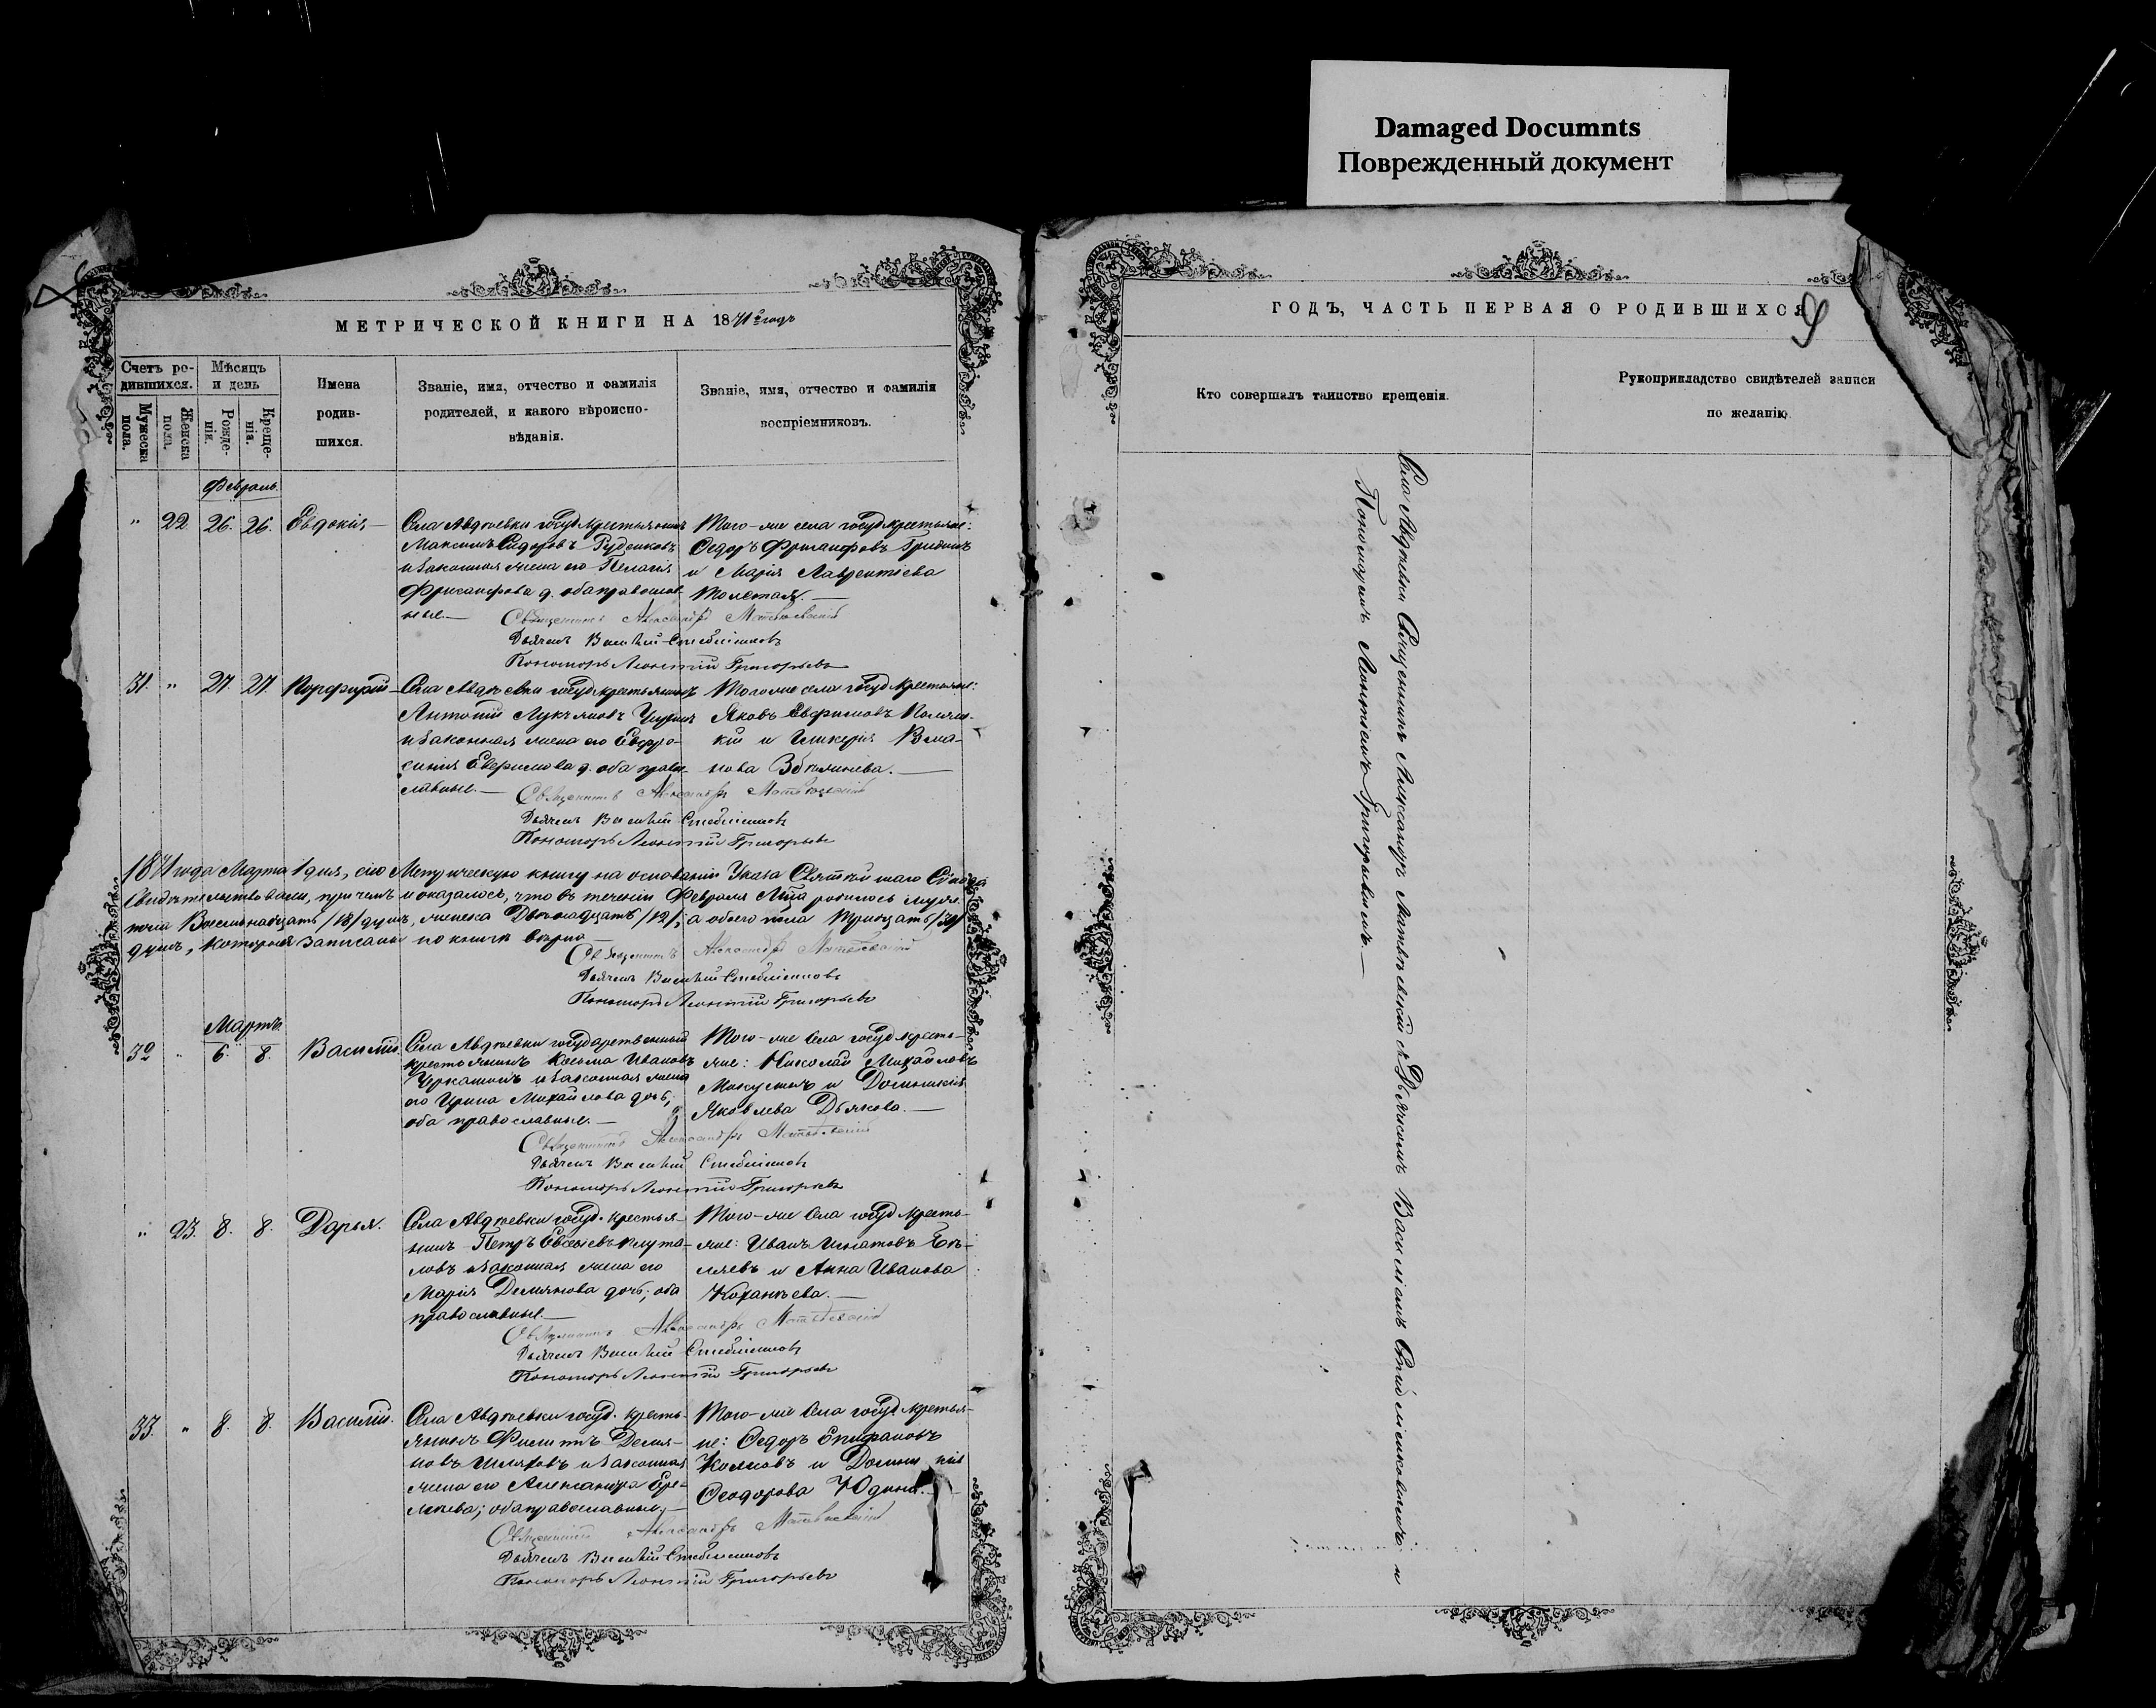 Damaged Documnts
Поврежденный документ
МЕТРИЧЕСКОЙ КНИГИ НА 1871 годъ
Счетъ ро-
дившихся.
Мужеска пола.
Женска пола.
Мѣсяцъ
и день
Рожде-
нія.
Креще-
нія.
Имена
родив-
шихся.
Званіе, имя, отчество и фамилія
родителей, и какого вѣроиспо-
вѣданія.
Званіе, имя, отчество и фамилія
воспріемниковъ.
Февраль
" 22 26. 26. Евдокія
Села Авдѣевки госуд крестьянинъ
Максимъ Сидоровъ Руденковъ
и законная жена его Пелагія
Фрисанфова д. оба православ-
ные.
Того-же села госуд крестьяне:
Ѳедоръ Фрисанфовъ
и Марія Лаврентіева
Толстая.
Священникъ Александръ Матвѣевскій
Дьячекъ Василій
Пономарь Леонтій Григорьевъ
31. " 27. 27. Порфирій
Села Авдѣевки госуд крестьянинъ
Антоній Лукьяновъ
и законная жена его Евфро-
синія Ефримова д. оба право-
славные.
Того же села госуд крестьяне:
Яковъ Евфимовъ
и Гликерія
Священникъ Александръ Матвѣевскій
Дьячекъ Василій
Пономарь Леонтій Григорьевъ
1871 года Марта 1 дня, сію Метрическую книгу на основаніи Указа Святѣйшаго Сѵнода
свидѣтельствовали, при чемъ и оказалось, что въ теченіи Февраля м-ца родилось муже-
ска Восемнадцать /18/ душъ, женска Двенадцать /12/, а обоего пола тридцать /30/
душъ, которыя записаны по книгѣ вѣрно
Священникъ Александръ Матвѣевскій
Дьячекъ Василій
Пономарь Леонтій Григорьевъ
Мартъ
32 " 6. 8. Василій.
Села Авдѣевки государственный
крестьянинъ Косьма Ивановъ
и законная жена
его Ирина Михайлова дочь,
оба православные.
Того-же села госуд кресть-
яне: Николай Михайловъ
и Домникія
Яковлева Дьякова.
Священникъ Александръ Матвѣевскій
Дьячекъ Василій
Пономарь Леонтій Григорьевъ
" 23. 8. 8. Дарья.
Села Авдѣевки госуд. крестья-
нинъ Петръ Евсеіевъ
и законная жена его
Марія Демянова дочь; оба
православные.
Того-же села госуд кресть-
яне: Иванъ Игнатовъ
и Анна Иванова
Коханѣева.
Священникъ Александръ Матвѣевскій
Дьячекъ Василій
Пономарь Леонтій Григорьевъ
33. " 8. 8. Василій.
Села Авдѣевки госуд. кресть-
янинъ Филиппъ Демя-
новъ и законная
жена его Александра Ере-
мѣева; оба православные.
Того-же села госуд крестья-
не: Ѳедоръ Епифановъ
и Домникія
Ѳеодорова Юдина.
Священникъ Александръ Матвѣевскій
Дьячекъ Василій
Пономарь Леонтій Григорьевъ
ГОДЪ, ЧАСТЬ ПЕРВАЯ О РОДИВШИХСЯ
9
Кто совершалъ таинство крещенія.
Рукоприкладство свидѣтелей записи
по желанію.
Села Авдѣевки Священникъ Александръ Матвѣевскій съ Дьячкомъ Василіемъ и
Пономаремъ Леонтіемъ Григорьевымъ.